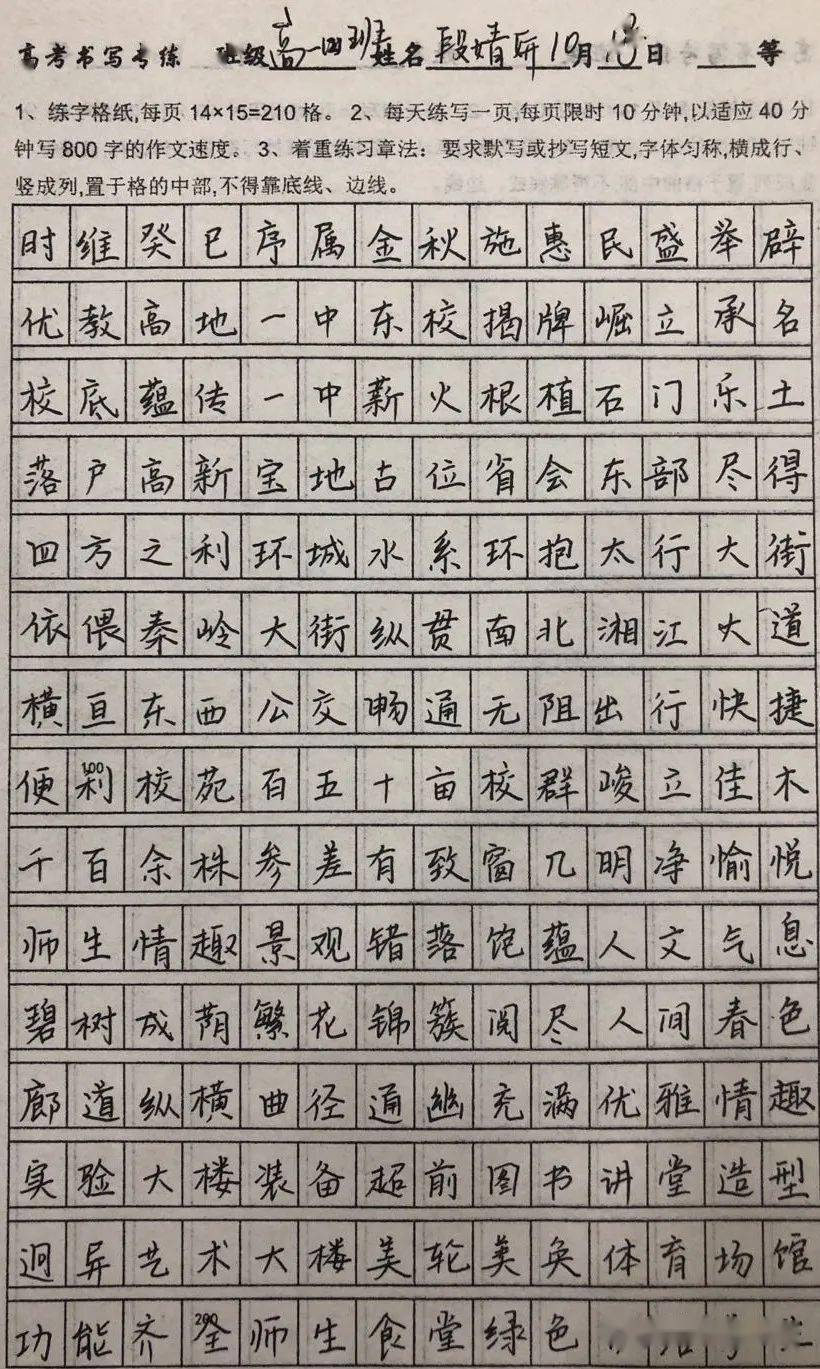 高考书写专练 班级高一四班姓名段婧妍10月13日 等
1、练字格纸,每页 14×15=210 格。 2、每天练写一页,每页限时 10 分钟,以适应 40 分
钟写 800 字的作文速度。 3、着重练习章法：要求默写或抄写短文,字体匀称,横成行、
竖成列,置于格的中部,不得靠底线、边线。
时维癸巳序属金秋施惠民盛举辟
优教高地一中东校揭牌崛立承名
校底蕴传一中薪火根植石门乐土
落户高新宝地古位省会东部尽得
四方之利环城水系环抱太行大街
依偎秦岭大街纵贯南北湘江大道
横亘东西公交畅通无阻出行快捷
便利校苑百五十亩校群峻立佳木
100
千百余株参差有致窗几明净愉悦
师生情趣景观错落饱蕴人文气息
碧树成荫繁花锦簇阅尽人间春色
廊道纵横曲径通幽充满优雅情趣
实验大楼装备超前图书讲堂造型
迥异艺术大楼美轮美奂体育场馆
功能齐全师生食堂绿色
200